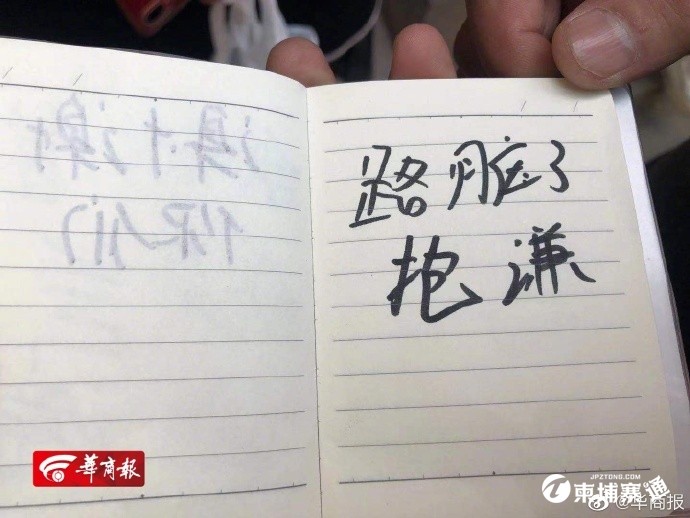 谢谢
你们
路脏了
抱谦
華商報
JPZTONG.COM
柬埔寨通
@华商报